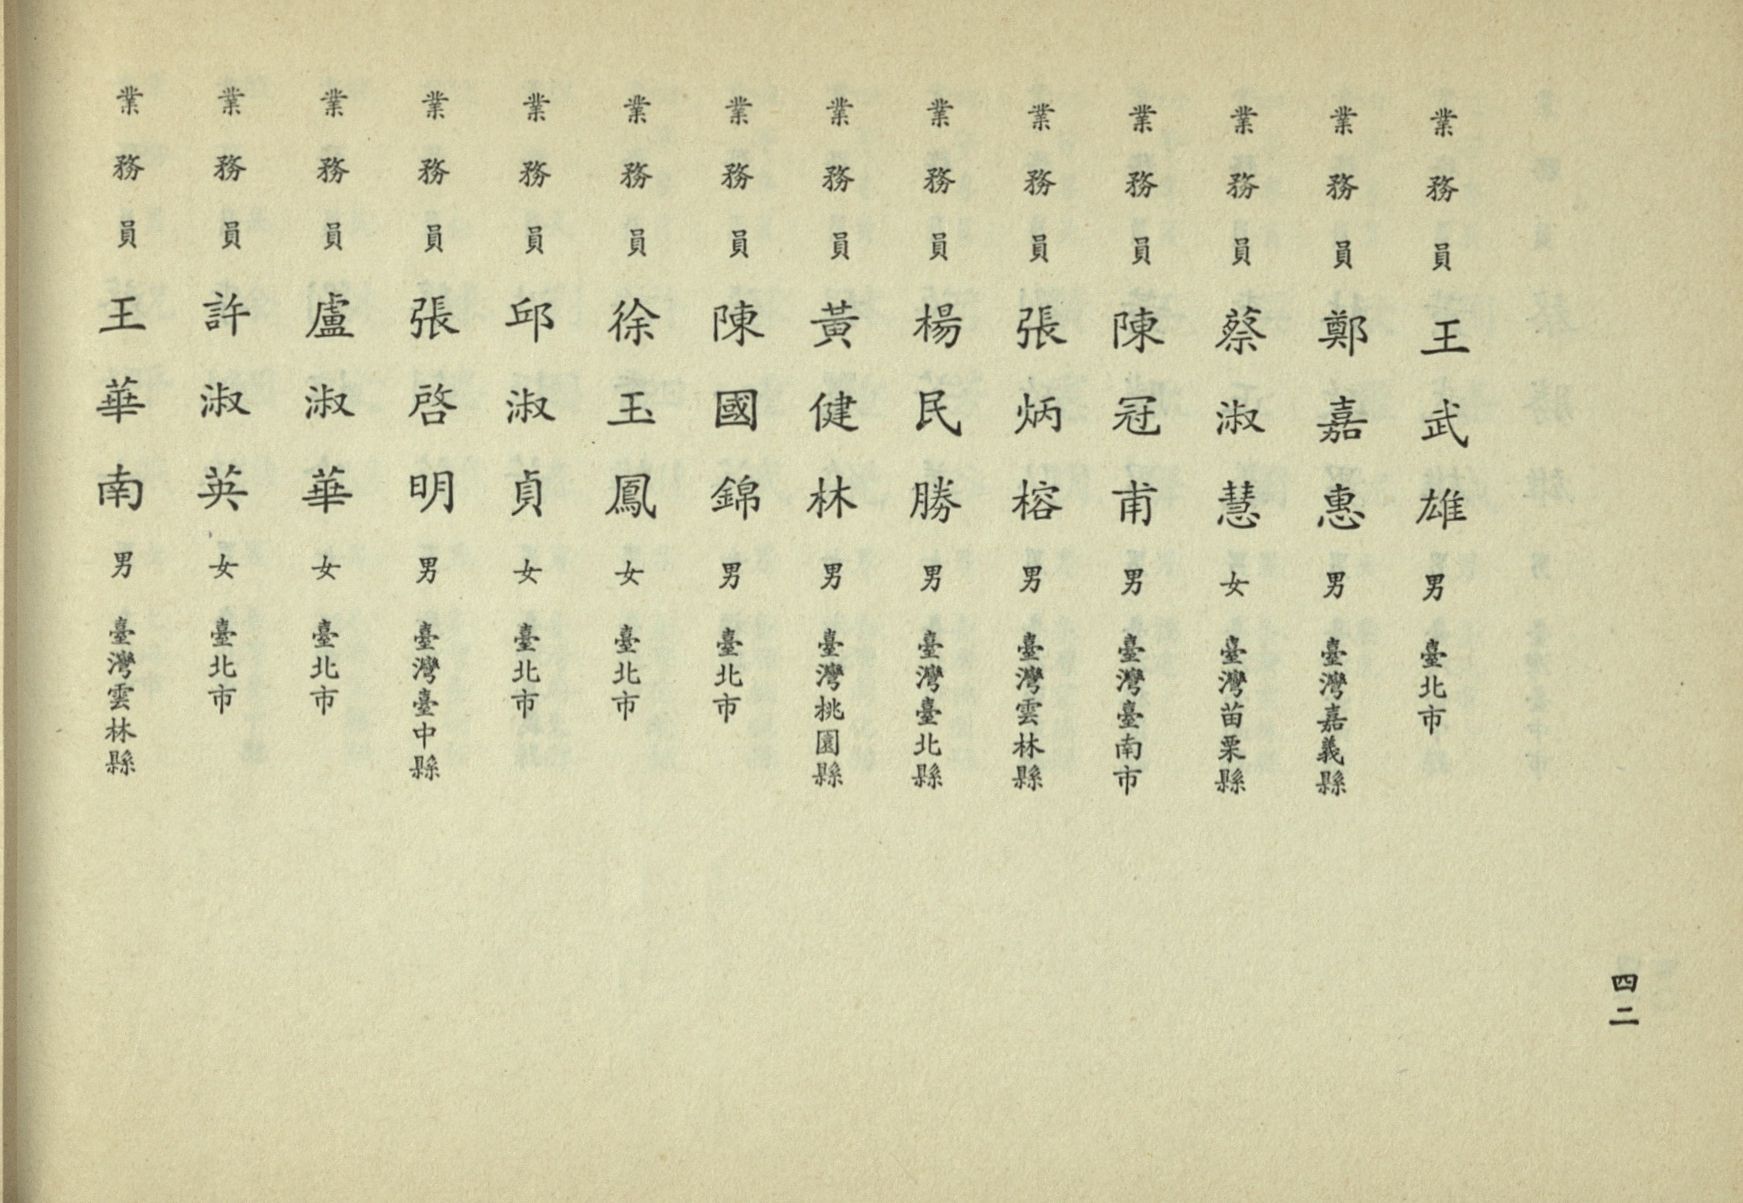 業務員 王武雄 男 臺北市
業務員 鄭嘉惠 男 臺灣嘉義縣
業務員 蔡淑慧 女 臺灣苗栗縣
業務員 陳冠甫 男 臺灣臺南市
業務員 張炳榕 男 臺灣雲林縣
業務員 楊民勝 男 臺灣臺北縣
業務員 黃健林 男 臺灣桃園縣
業務員 陳國錦 男 臺北市
業務員 徐玉鳳 女 臺北市
業務員 邱淑貞 女 臺北市
業務員 張啓明 男 臺灣臺中縣
業務員 盧淑華 女 臺北市
業務員 許淑英 女 臺北市
業務員 王華南 男 臺灣雲林縣
四二